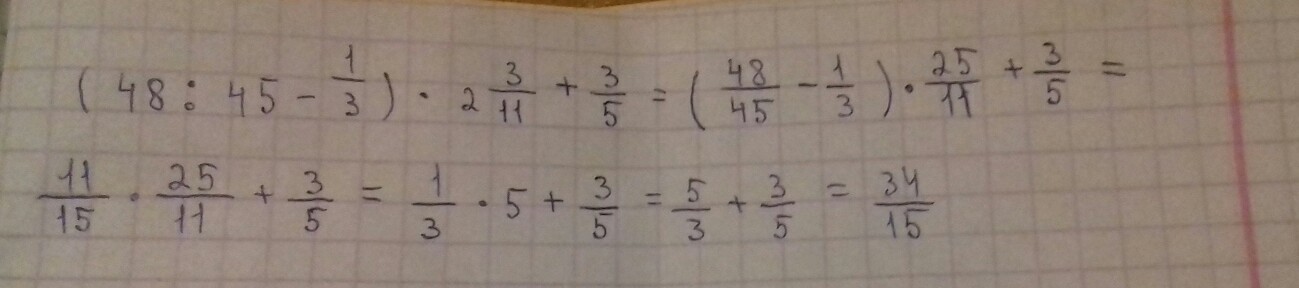 (48 : 45 - 1/3) · 2 3/11 + 3/5 = (48/45 - 1/3) · 25/11 + 3/5 =
11/15 · 25/11 + 3/5 = 1/3 · 5 + 3/5 = 5/3 + 3/5 = 34/15